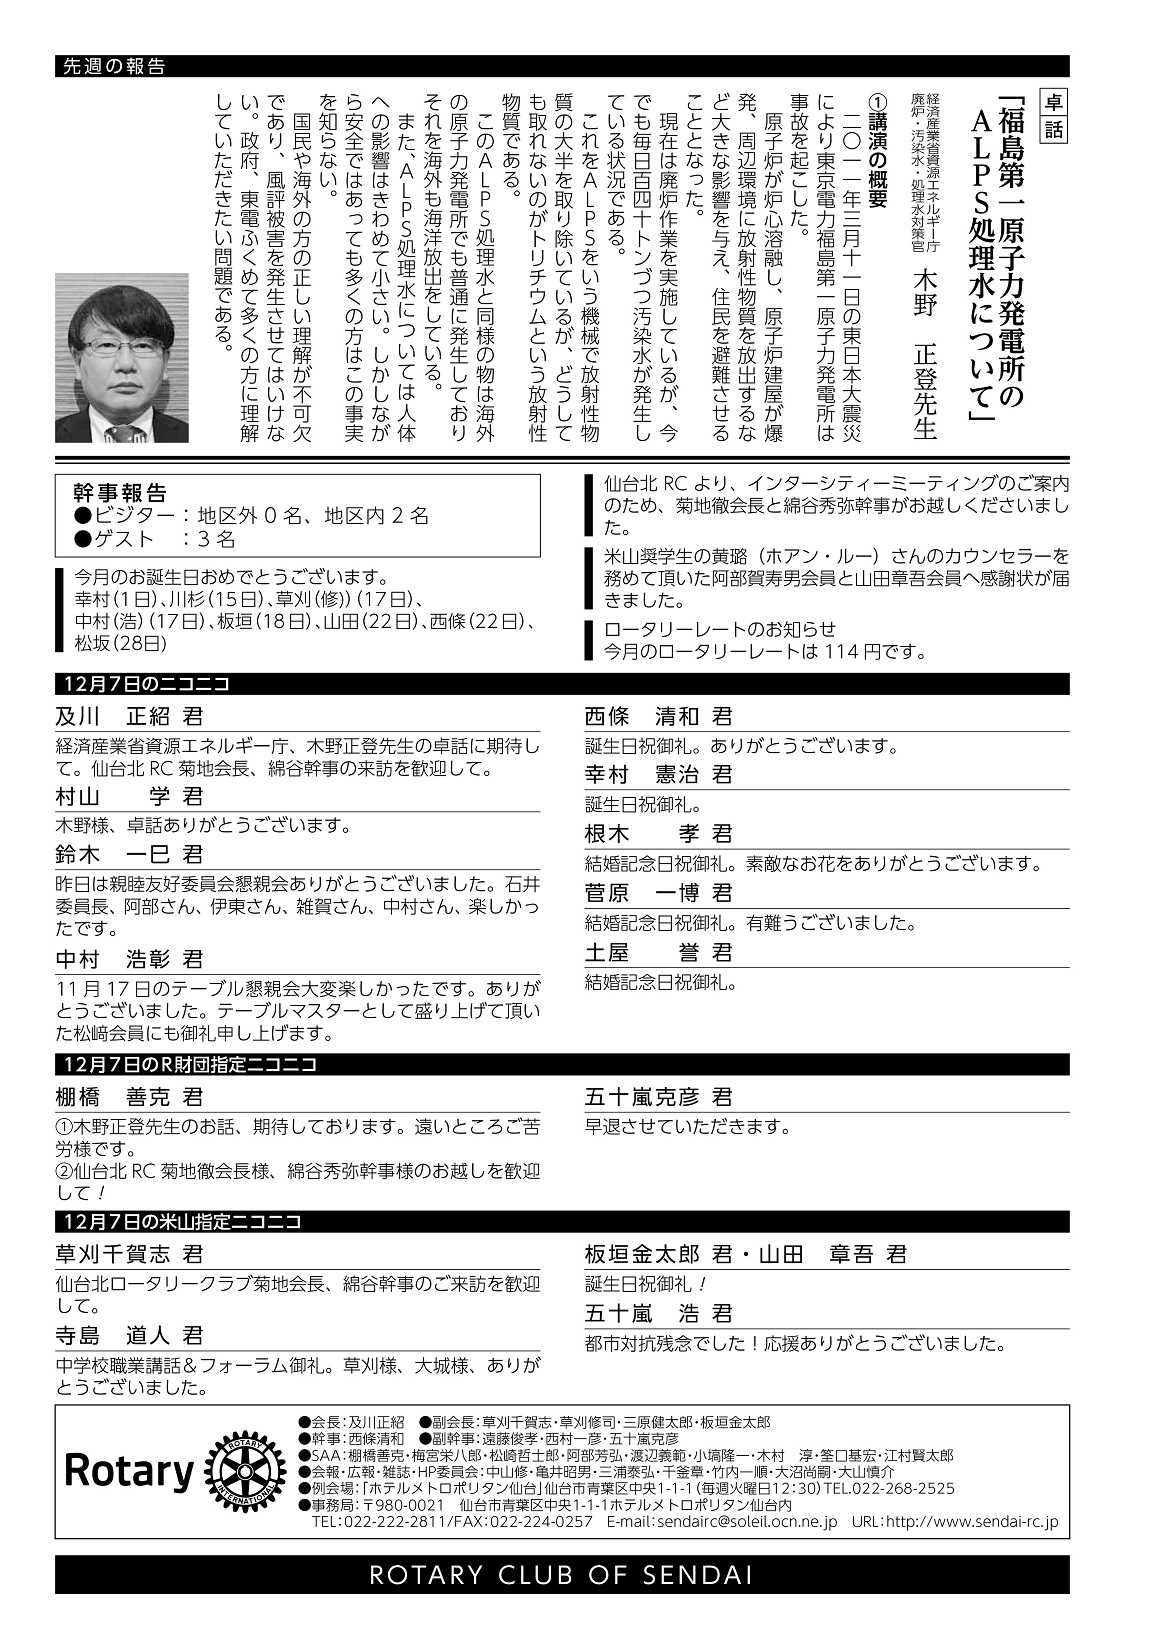 先週の報告
卓話
「福島第一原子力発電所の
ALPS処理水について」
経済産業省資源エネルギー庁
廃炉・汚染水・処理水対策官
木野　正登先生
①講演の概要
　二〇一一年三月十一日の東日本大震災
により東京電力福島第一原子力発電所は
事故を起こした。
　原子炉が炉心溶融し、原子炉建屋が爆
発、周辺環境に放射性物質を放出するな
ど大きな影響を与え、住民を避難させる
こととなった。
　現在は廃炉作業を実施しているが、今
でも毎日百四十トンづつ汚染水が発生し
ている状況である。
　これをALPSをいう機械で放射性物
質の大半を取り除いているが、どうして
も取れないのがトリチウムという放射性
物質である。
　このALPS処理水と同様の物は海外
の原子力発電所でも普通に発生しており
それを海外も海洋放出をしている。
　また、ALPS処理水については人体
への影響はきわめて小さい。しかしなが
ら安全ではあっても多くの方はこの事実
を知らない。
　国民や海外の方の正しい理解が不可欠
であり、風評被害を発生させてはいけな
い。政府、東電ふくめて多くの方に理解
していただきたい問題である。
幹事報告
●ビジター：地区外 0 名、地区内 2 名
●ゲスト　：3 名
今月のお誕生日おめでとうございます。
幸村(1日)、川杉(15日)、草刈(修))(17日)、
中村(浩)(17日)、板垣(18日)、山田(22日)、西條(22日)、
松坂(28日)
仙台北 RC より、インターシティーミーティングのご案内
のため、菊地徹会長と綿谷秀弥幹事がお越しくださいまし
た。
米山奨学生の黄璐（ホアン・ルー）さんのカウンセラーを
務めて頂いた阿部賀寿男会員と山田章吾会員へ感謝状が届
きました。
ロータリーレートのお知らせ
今月のロータリーレートは 114 円です。
12月7日のニコニコ
及川　正紹 君
経済産業省資源エネルギー庁、木野正登先生の卓話に期待し
て。仙台北 RC 菊地会長、綿谷幹事の来訪を歓迎して。
村山　　学 君
木野様、卓話ありがとうございます。
鈴木　一巳 君
昨日は親睦友好委員会懇親会ありがとうございました。石井
委員長、阿部さん、伊東さん、雑賀さん、中村さん、楽しかっ
たです。
中村　浩彰 君
11 月 17 日のテーブル懇親会大変楽しかったです。ありが
とうございました。テーブルマスターとして盛り上げて頂い
た松﨑会員にも御礼申し上げます。
西條　清和 君
誕生日祝御礼。ありがとうございます。
幸村　憲治 君
誕生日祝御礼。
根木　　孝 君
結婚記念日祝御礼。素敵なお花をありがとうございます。
菅原　一博 君
結婚記念日祝御礼。有難うございました。
土屋　　誉 君
結婚記念日祝御礼。
12月7日のR財団指定ニコニコ
棚橋　善克 君
①木野正登先生のお話、期待しております。遠いところご苦
労様です。
②仙台北 RC 菊地徹会長様、綿谷秀弥幹事様のお越しを歓迎
して！
五十嵐克彦 君
早退させていただきます。
12月7日の米山指定ニコニコ
草刈千賀志 君
仙台北ロータリークラブ菊地会長、綿谷幹事のご来訪を歓迎
して。
寺島　道人 君
中学校職業講話＆フォーラム御礼。草刈様、大城様、ありが
とうございました。
板垣金太郎 君・山田　章吾 君
誕生日祝御礼！
五十嵐　浩 君
都市対抗残念でした！応援ありがとうございました。
Rotary
ROTARY
INTERNATIONAL
●会長：及川正紹　●副会長：草刈千賀志・草刈修司・三原健太郎・板垣金太郎
●幹事：西條清和　●副幹事：遠藤俊孝・西村一彦・五十嵐克彦
●SAA：棚橋善克・梅宮栄八郎・松﨑哲士郎・阿部芳弘・渡辺義範・小塙隆一・木村　淳・筌口基宏・江村賢太郎
●会報・広報・雑誌・HP委員会：中山修・亀井昭男・三浦泰弘・千釜章・竹内一順・大沼尚嗣・大山慎介
●例会場：「ホテルメトロポリタン仙台」仙台市青葉区中央1-1-1（毎週火曜日12:30）TEL.022-268-2525
●事務局：〒980-0021　仙台市青葉区中央1-1-1ホテルメトロポリタン仙台内
TEL：022-222-2811/FAX：022-224-0257　E-mail：sendairc@soleil.ocn.ne.jp　URL：http://www.sendai-rc.jp
ROTARY CLUB OF SENDAI